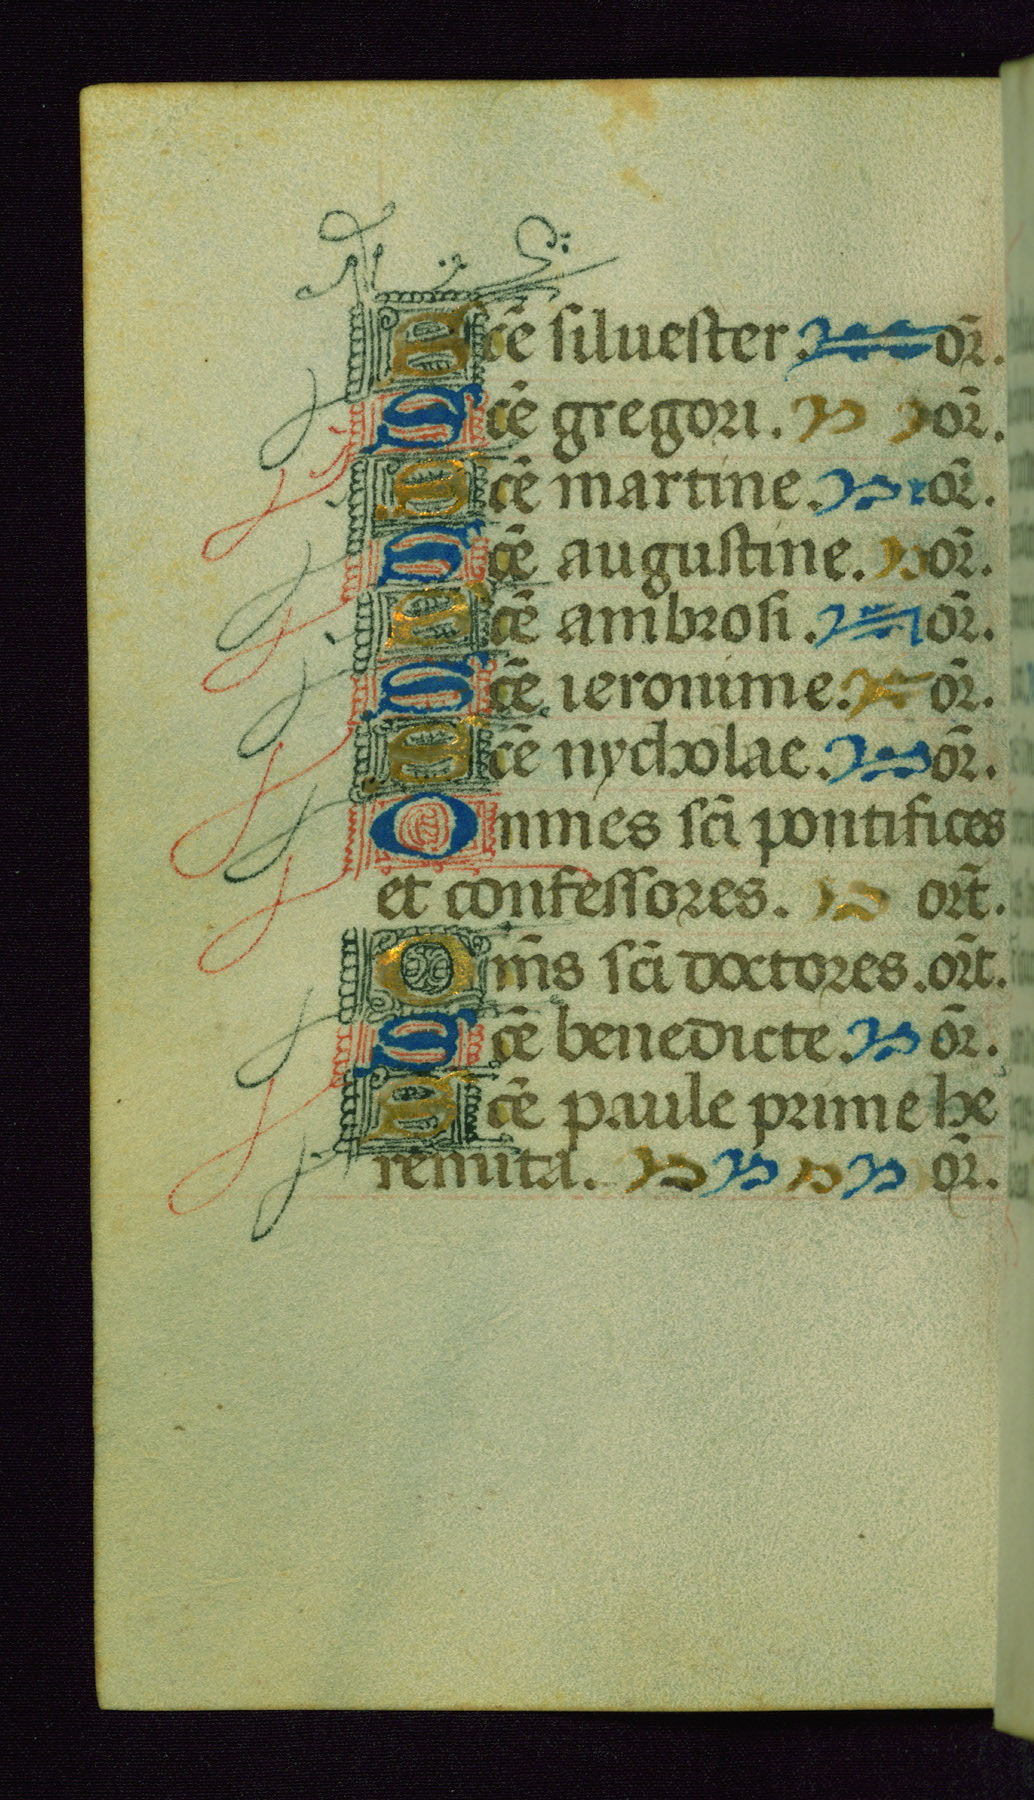 Scē siluester. or̄.
Scē gregori. or̄.
Scē martine. or̄.
Scē augustine. or̄.
Scē ambrosi. or̄.
Scē ieronime. or̄.
Scē nycholae. or̄.
Omnes sc̄i pontifices
et confessores. or̄t.
Om̄s sc̄i doctores. or̄t.
Scē benedicte. or̄.
Scē paule prime he
remita. or̄.